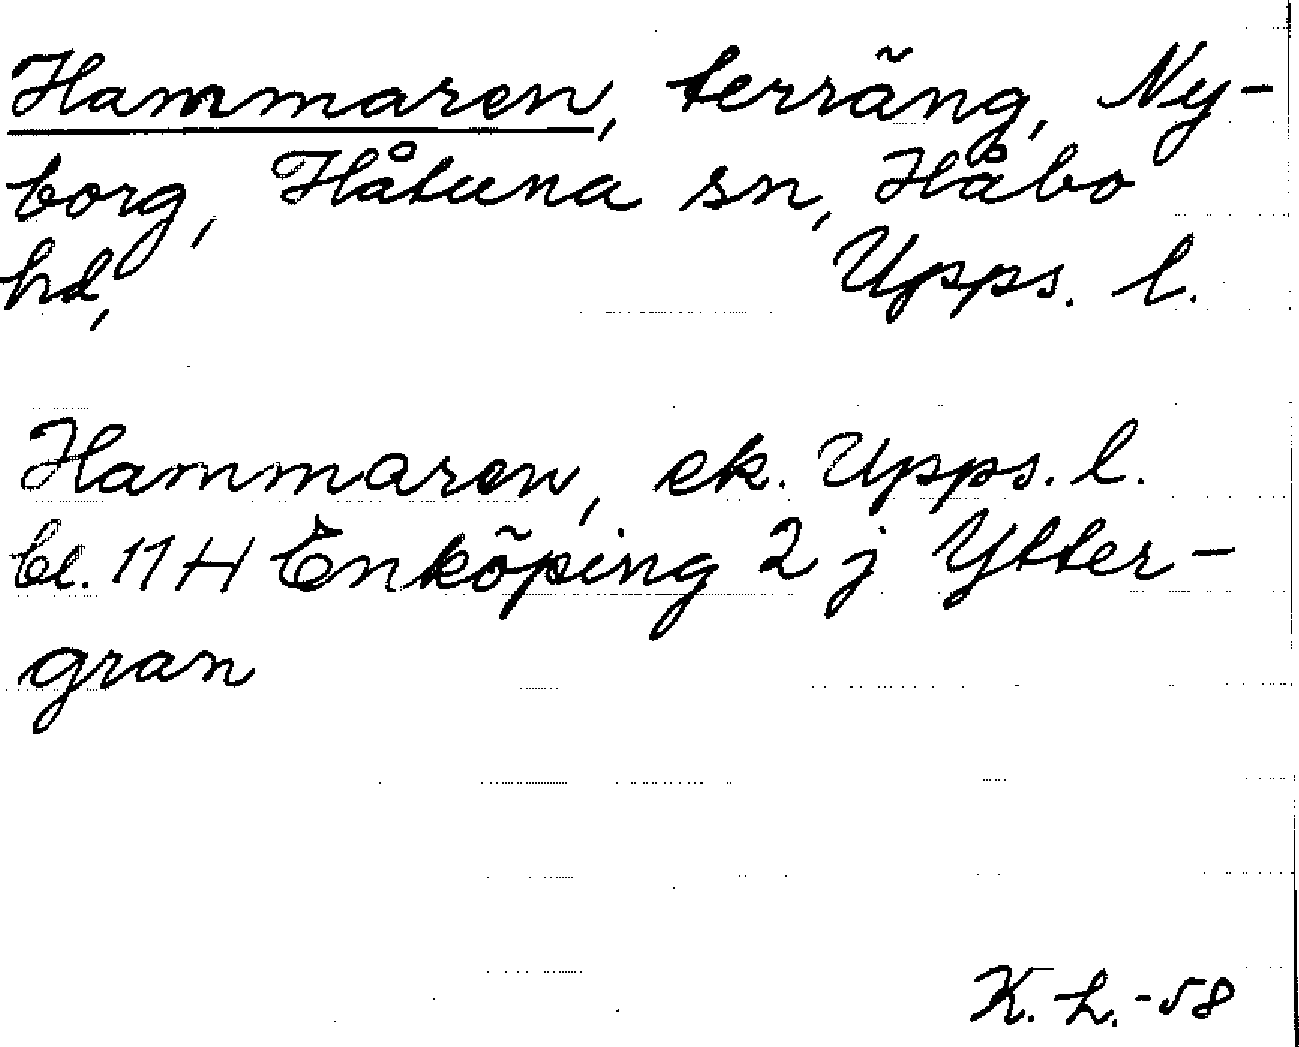 Hammaren, terräng, Ny-
borg, Håtuna sn, Håbo
hd, Upps. l.
Hammaren, ek. Upps. l.
bl. 11 H Enköping 2 j Ytter-
gran
K. L. -58